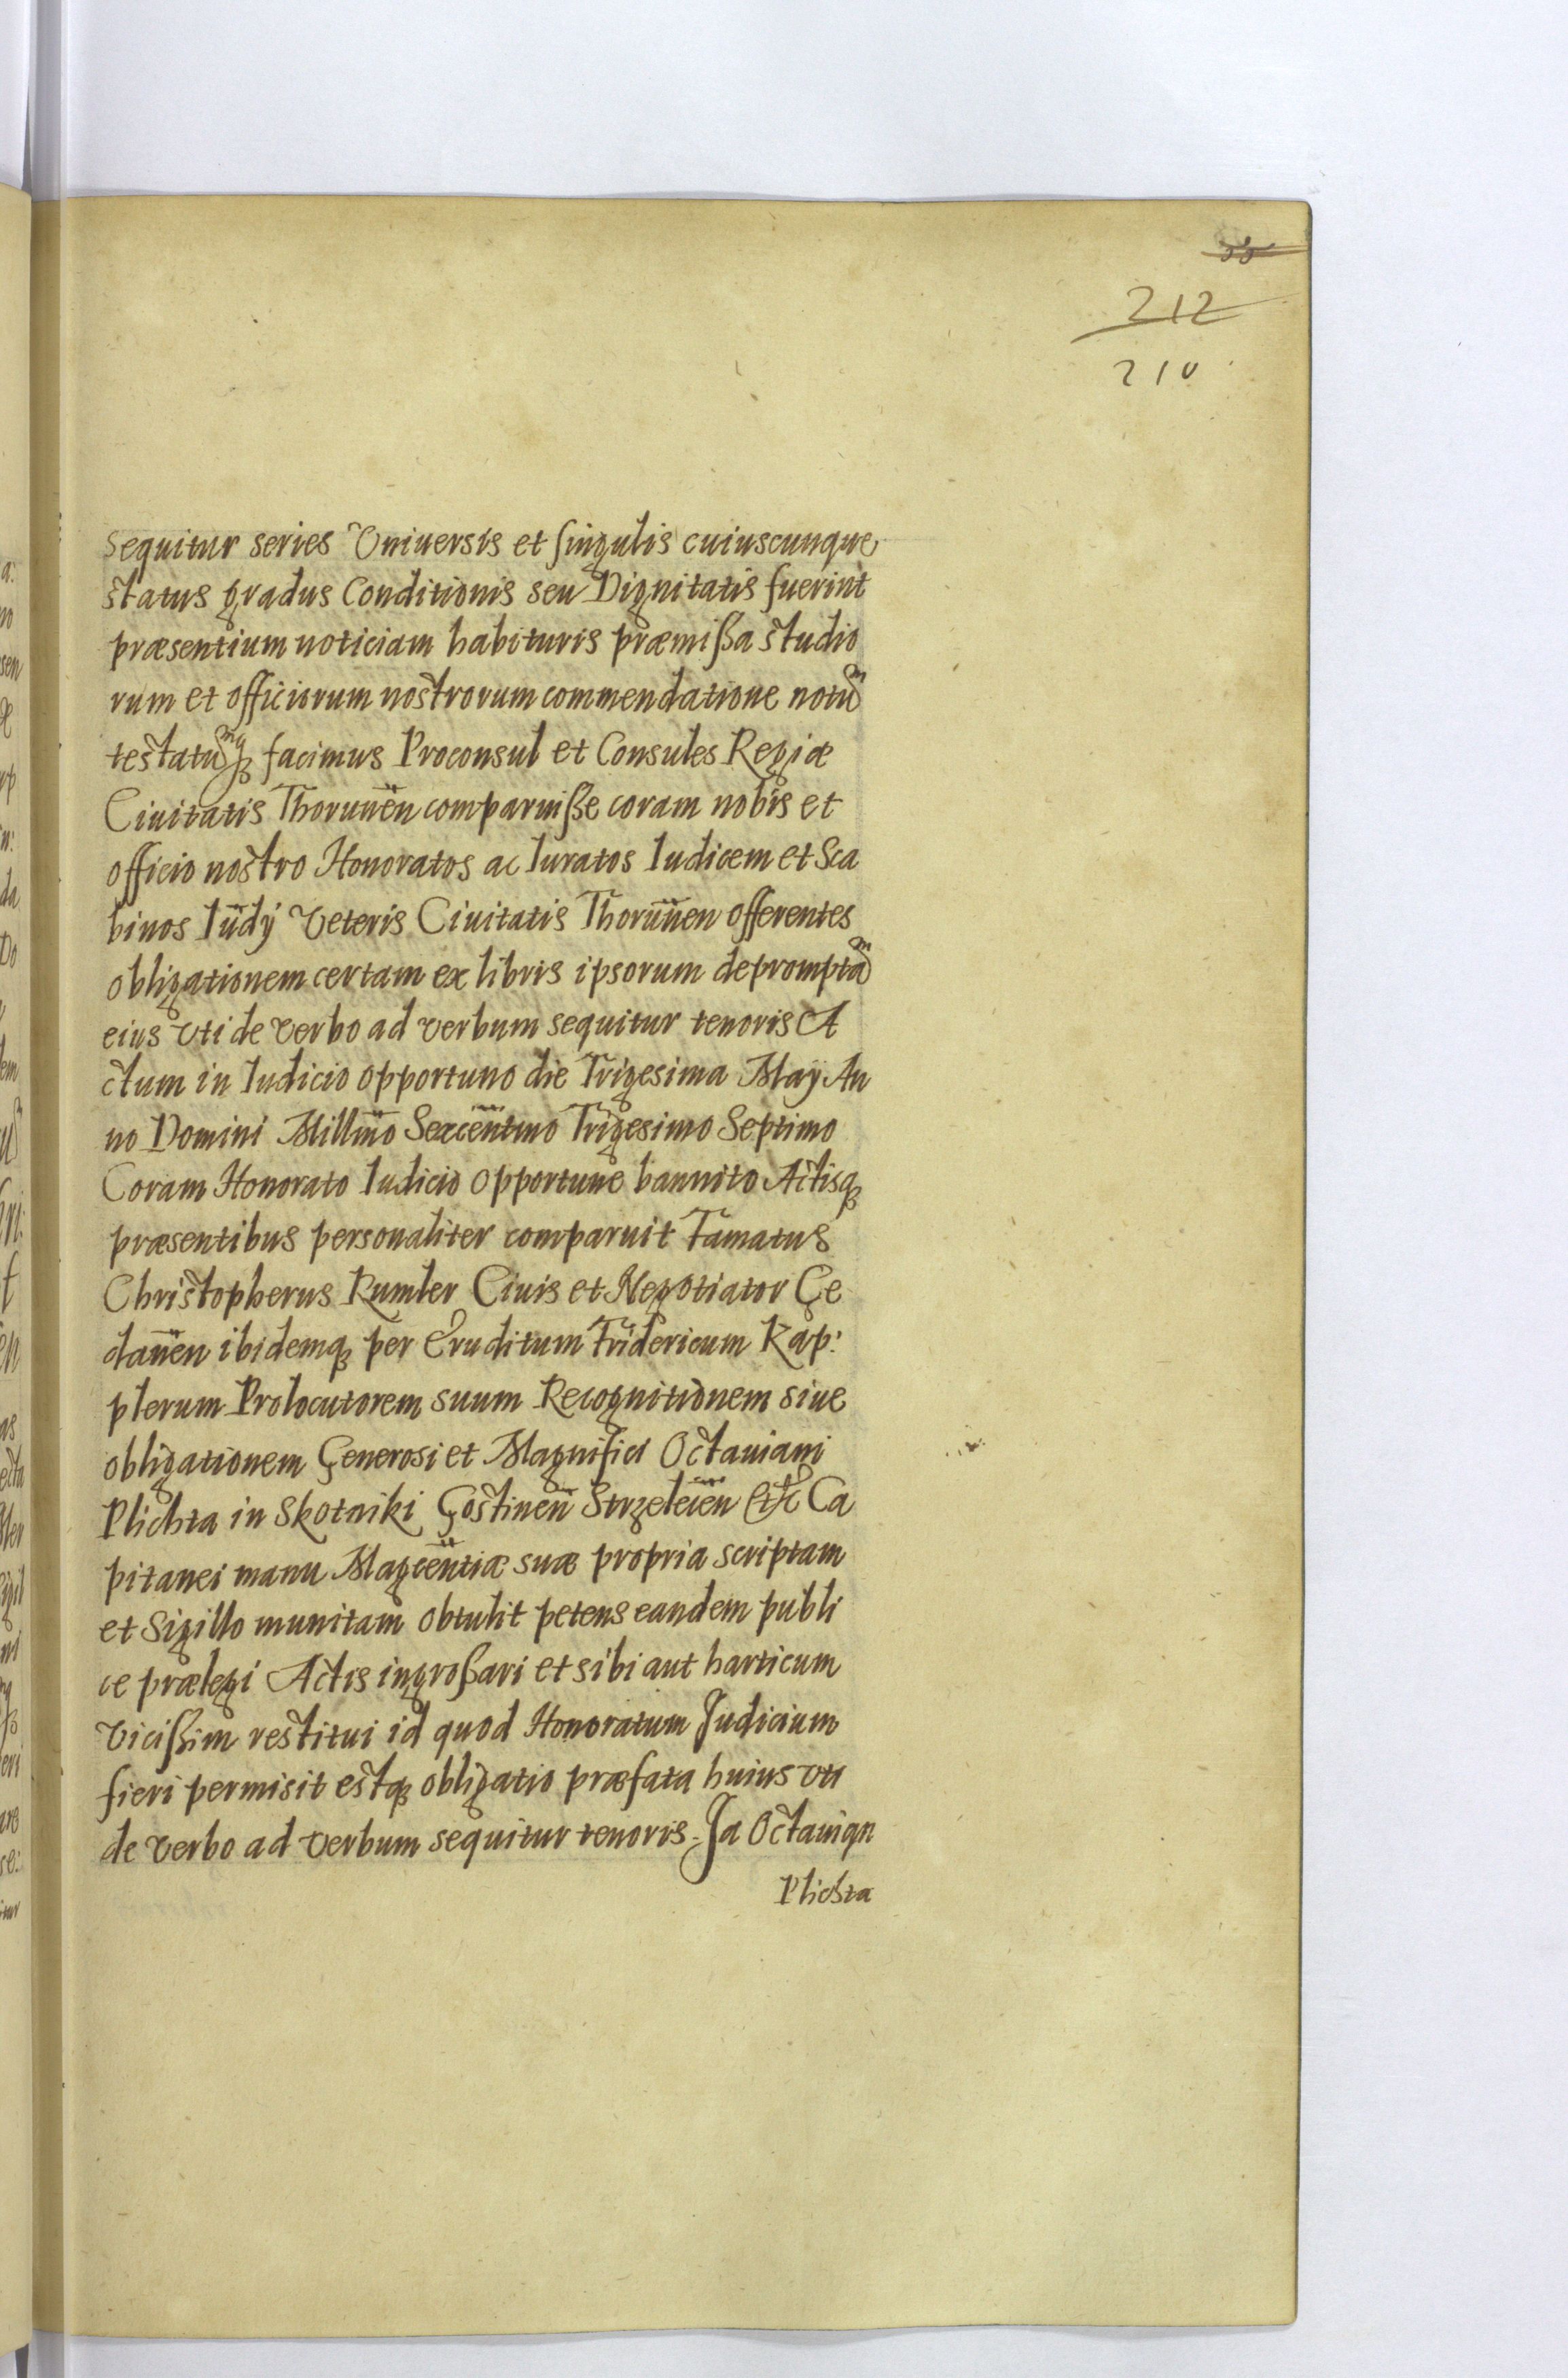 212
210
Sequitur series Vniuersis et singulis cuiuscunque
status gradus Conditionis seu Dignitatis fuerint
præsentium noticiam habituris præmißa studio
rum et officiorum nostrorum commendatione notu͂m
testatu͂mq́ꝫ facimus Proconsul et Consules Regiæ
Ciuitatis Thoruneñ comparuiße coram nobis et
officio nostro Honoratos ac Iuratos Iudicem et Sca
binos Iud̃ÿ Veteris Ciuitatis Thoruñen offerentes
obligationem certam ex libris ipsorum depromptam
eius vti de verbo ad verbum sequitur tenoris A
ctum in Iudicio opportuno die Trigesima Maÿ An
no Domini Millm̃o Sexcent̃mo Trigesimo Septimo
Coram Honorato Iudicio opportune bannito Actisqꝫ
præsentibus personaliter comparuit Famatus
Christopherus Rumler Ciuis et Negotiator Ge
dañen ibidemqꝫ per Eruditum Fridericum Kap:
plerum Prolocutorem suum Recognitionem siue
obligationem Generosi et Magnifici Octauiani
Plichta in Skotniki Gostineñ Strzeleceñ Etc Ca
pitanei manu Magceñtiæ suæ propria scriptam
et Sigillo munitam obtulit petens eandem publi
ce prælegi Actis ingroßari et sibi aut harticum
Vicißim restitui id quod Honoratum Judicium
fieri permisit estqꝫ obligatio præfata huius vti
de verbo ad verbum sequitur tenoris. Ja Octauian
Plichta